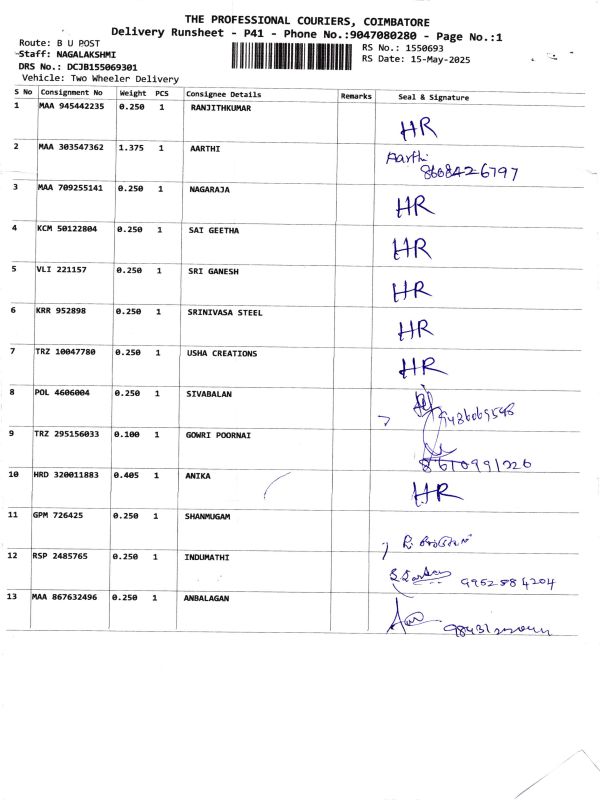 THE PROFESSIONAL COURIERS, COIMBATORE
Delivery Runsheet - P41 - Phone No.:9047080280 - Page No.:1
Route: B U POST RS No.: 1550693
Staff: NAGALAKSHMI RS Date: 15-May-2025
DRS No.: DCJB155069301
Vehicle: Two Wheeler Delivery
S No Consignment No Weight PCS Consignee Details Remarks Seal & Signature
1 MAA 945442235 0.250 1 RANJITHKUMAR HR
2 MAA 303547362 1.375 1 AARTHI Aarthi
8608426797
3 MAA 709255141 0.250 1 NAGARAJA HR
4 KCM 50122804 0.250 1 SAI GEETHA HR
5 VLI 221157 0.250 1 SRI GANESH HR
6 KRR 952898 0.250 1 SRINIVASA STEEL HR
7 TRZ 10047780 0.250 1 USHA CREATIONS HR
8 POL 4606004 0.250 1 SIVABALAN
9 TRZ 295156033 0.100 1 GOWRI POORNAI 8610991226
10 HRD 320011883 0.405 1 ANIKA HR
11 GPM 726425 0.250 1 SHANMUGAM
12 RSP 2485765 0.250 1 INDUMATHI 9952884204
13 MAA 867632496 0.250 1 ANBALAGAN